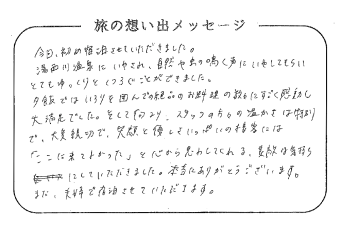 旅の想い出メッセージ
今回、初めて宿泊させていただきました。
湯西川温泉にいやされ、自然や虫の鳴く声にいやしてもらい
とてもゆっくりとくつろぐことができました。
夕飯ではいろりを囲んでの絶品のお料理の数々にすごく感動し
大満足でした。そして何より、スタッフの方々の温かさは特別
で、大変親切で、笑顔と優しさいっぱいの接客には
「ここに来てよかった」と心から思わしてくれる、素敵な気持ち
にしていただきました。本当にありがとうございます。
また、夫婦で宿泊させていただきます。